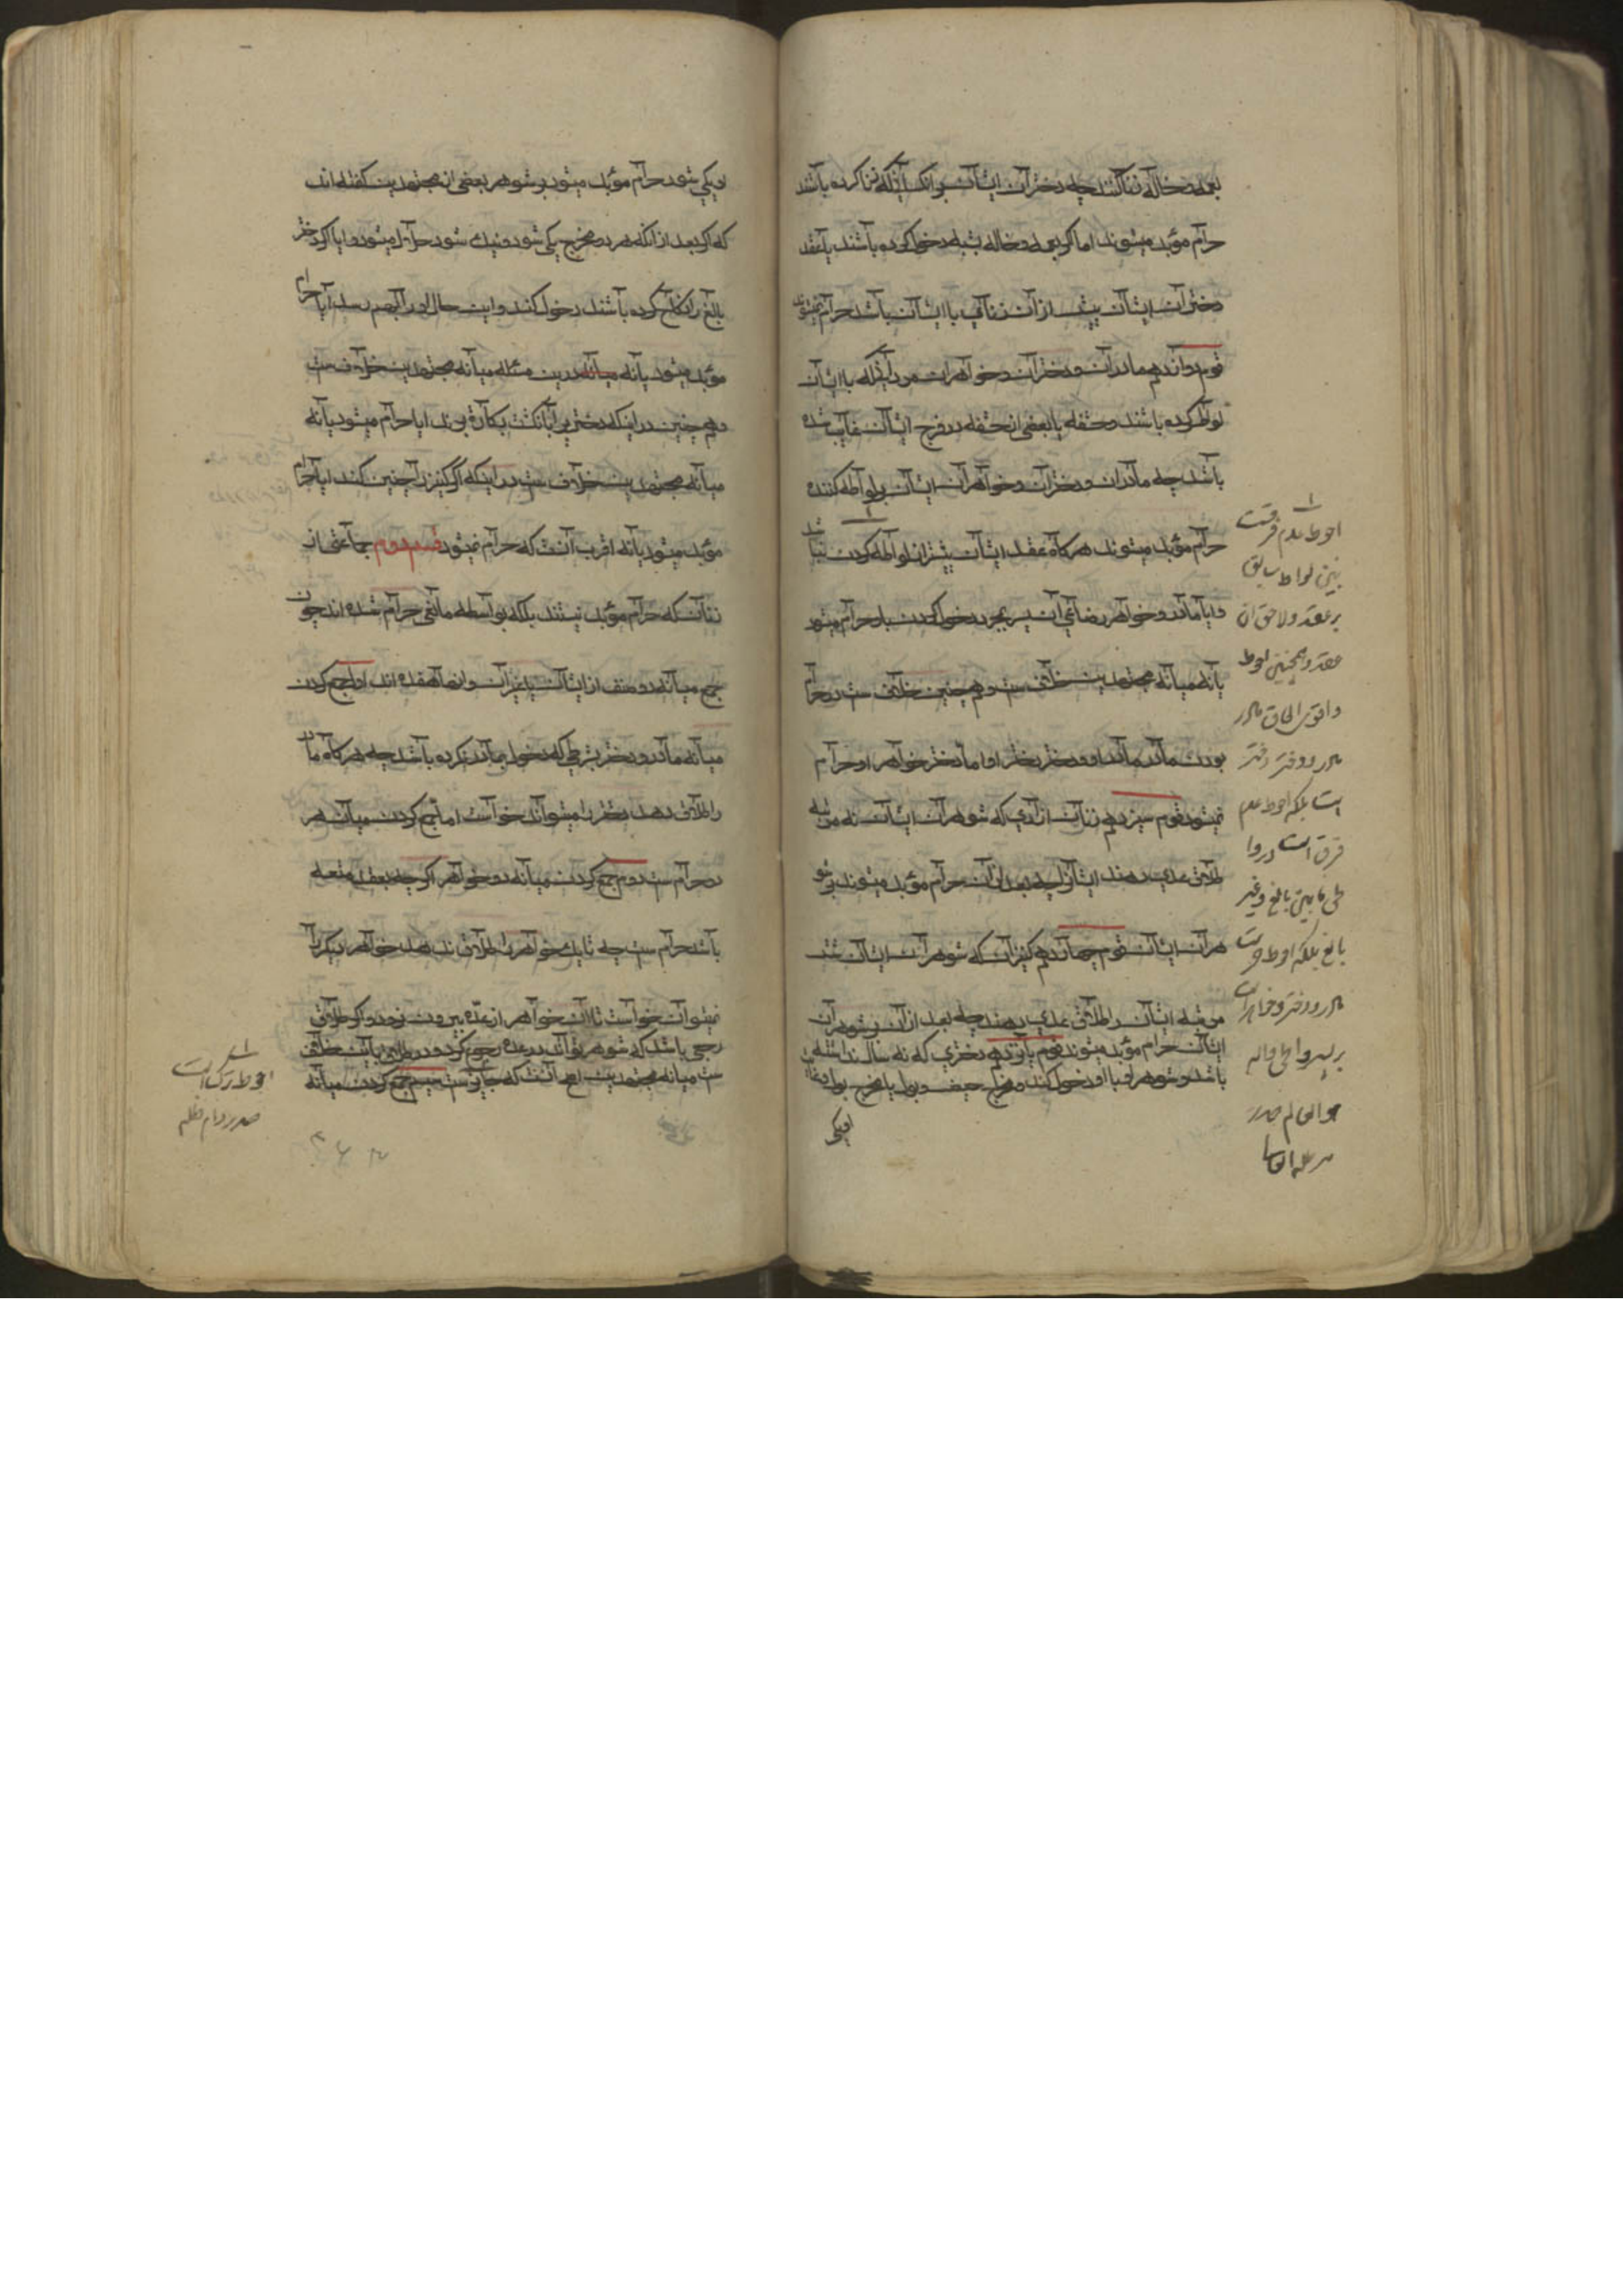 بعمه و خاله زنا کنند چه دختران ایشان بر آنکس آنکه زنا کرده باشند
حرام مؤبد میشوند اما اگر بعمه و خاله بشبه دخول کرده باشند یا بعقد
دختران ایشان پیش از آن زنائی با ایشان باشد حرام نمیشوند
قوم دوازدهم مادران و دختران و خواهران مردانیکه با ایشان
لواط کرده باشند و حشفه یا بعضی از حشفه در فرج ایشان غایب شده
باشد چه مادران و دختران و خواهران ایشان بر لواطه کننده
حرام مؤبد میشوند هرگاه عقد ایشان پیشتر از لواطه کردن نباشد
و آیا مادر و خواهر رضاعی آن پسر بمجرد دخول کردن باو حرام میشود
یا نه میانه مجتهدین خلاف ست و همچنین خلاف ست در حرام
بودن مادر مادر او و دختر دختر او اما دختر خواهر او حرام
نمیشود قوم سیزدهم زنان آزادی که شوهران ایشان نه مرتبه
طلاق عدی دهند ایشان را چه بعد از آن حرام مؤبد میشوند بر شو
هران ایشان قوم چهاردهم کنیزان که شوهران ایشان شش
مرتبه ایشان را طلاق عدی دهند چه بعد از آن بر شوهران
ایشان حرام مؤبد میشوند قوم پانزدهم دختری که نه سال نداشته
باشد و شوهر او با او دخول کند و مخرج حیض و بول یا مخرج بول و غایط
او یکی
احوط عدم فرقست
بین لواط سابق
بر عقد و لاحق آن
عقد و همچنین احوط
و اقوی الحاق مادر
مادر و دختر دختر
است بلکه احوط عدم
فرق است در وا
طی مابین بالغ و غیر
بالغ بلکه احوط حرمت
مادر و دختر و خواهر
صدر
او یکی شود حرام مؤبد میشود بر شوهر بعضی از مجتهدین گفته اند
که اگر بعد از آنکه هر دو مخرج یکی شود و نیک شود حرام نمیشود و آیا اگر دختر
بالغ را نکاح کرده باشند دخول کند و این حال او را بهم رسد آیا حرام
مؤبد میشود یا نه میانه درین مسئله میانه مجتهدین خلاف ست
و همچنین در اینکه دختری را بانگشت بکارة برند آیا حرام میشود یا نه
میانه مجتهدین خلاف ست در اینکه اگر کنیز را چنین کند آیا حرام
مؤبد میشود یا نه اقرب آنست که حرام نمیشود قسم دوم جماعتی از
زنان که حرام مؤبد نیستند بلکه بواسطه مانعی حرام شده اند چون
جمع میانه دو صنف از ایشان یا غیر آن و آنها هفده اند اول جمع کردن
میانه مادر و دختر بشرطی که دخول بمادر نکرده باشد چه هرگاه مادر
را طلاق دهد دختر را میتواند خواست اما جمع کردن میان هر
دو حرام ست دوم جمع کردن میانه دو خواهر اگر چه بعقد متعه
باشد حرام ست چه تا یک خواهر را طلاق ندهد خواهر دیگر را
نمیتوان خواست تا آن خواهر از عده بیرون نرود و اگر طلاق
رجعی باشد که شوهر تواند در عده رجوع کرد و در طلاق باین خلاف
ست میانه مجتهدین اصح آنست که جایز ست سیم جمع کردن میانه
احوط ترک است
صدر دام ظله